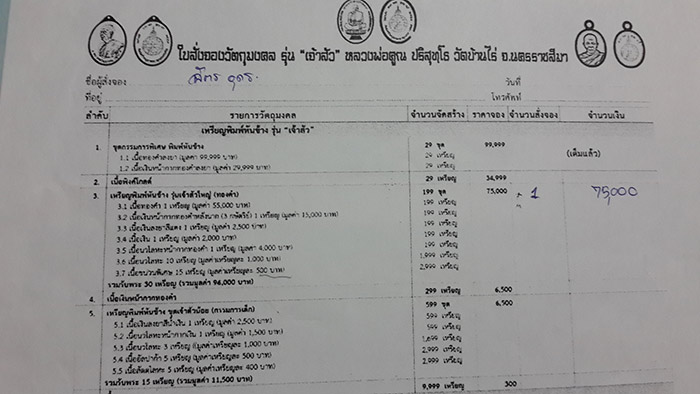 ใบสั่งจองวัตถุมงคล รุ่น "เจ้าสัว" หลวงพ่อคูณ ปริสุทฺโธ วัดบ้านไร่ จ.นครราชสีมา
ชื่อผู้สั่งจอง วันที่
ที่อยู่ โทรศัพท์
ลำดับ รายการวัตถุมงคล จำนวนจัดสร้าง ราคาจอง จำนวนสั่งจอง จำนวนเงิน
เหรียญพิมพ์หันข้าง รุ่น "เจ้าสัว"
1. ชุดกรรมการพิเศษ พิมพ์หันข้าง 29 ชุด 99,999
1.1 เนื้อทองคำลงยา (มูลค่า 99,999 บาท) 29 เหรียญ (เต็มแล้ว)
1.2 เนื้อเงินหน้ากากทองคำลงยา (มูลค่า 29,999 บาท) 29 เหรียญ
2. เนื้อพิงค์โกลด์ 29 เหรียญ 34,999
3. เหรียญพิมพ์หันข้าง รุ่นเจ้าสัวใหญ่ (ทองคำ) 199 ชุด 75,000 1 75,000
3.1 เนื้อทองคำ 1 เหรียญ (มูลค่า 55,000 บาท) 199 เหรียญ
3.2 เนื้อเงินหน้ากากทองคำหลังนาค (3 กษัตริย์) 1 เหรียญ (มูลค่า 15,000 บาท) 199 เหรียญ
3.3 เนื้อเงินลงยาสีแดง 1 เหรียญ (มูลค่า 2,500 บาท) 199 เหรียญ
3.4 เนื้อเงิน 1 เหรียญ (มูลค่า 2,000 บาท) 199 เหรียญ
3.5 เนื้อนวโลหะหน้ากากทองคำ 1 เหรียญ (มูลค่า 4,000 บาท) 199 เหรียญ
3.6 เนื้อนวโลหะ 10 เหรียญ (มูลค่าเหรียญละ 1,000 บาท) 1,999 เหรียญ
3.7 เนื้อชนวนพิเศษ 15 เหรียญ (มูลค่าเหรียญละ 500 บาท) 2,999 เหรียญ
รวมวัตถุพระ 30 เหรียญ (มูลค่า 94,000 บาท)
4. เนื้อเงินหน้ากากทองคำ 299 เหรียญ 6,500
5. เหรียญพิมพ์หันข้าง ชุดเจ้าสัวน้อย (กรรมการเล็ก) 599 ชุด 6,500
5.1 เนื้อเงินลงยาสีน้ำเงิน 1 เหรียญ (มูลค่า 2,500 บาท) 599 เหรียญ
5.2 เนื้อนวโลหะหน้ากากเงิน 1 เหรียญ (มูลค่า 1,500 บาท) 599 เหรียญ
5.3 เนื้อนวโลหะ 3 เหรียญ (มูลค่าเหรียญละ 1,000 บาท) 1,699 เหรียญ
5.4 เนื้ออัลปาก้า 5 เหรียญ (มูลค่าเหรียญละ 500 บาท) 2,999 เหรียญ
5.5 เนื้อสัตตโลหะ 5 เหรียญ (มูลค่าเหรียญละ 400 บาท) 2,999 เหรียญ
รวมวัตถุพระ 15 เหรียญ (รวมมูลค่า 11,500 บาท)
9,999 เหรียญ 300